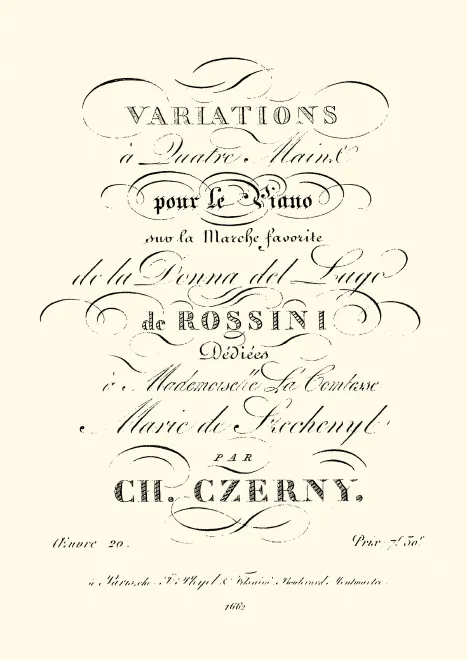 VARIATIONS
à Quatre Mains
pour Le Piano
sur la Marche favorite
de la Donna del Lago
de ROSSINI
Dédiées
à Mademoiselle La Comtesse
Marie de Szechenyi
PAR
CH. CZERNY.
Œuvre 20.
Prix 7f 50c
à Paris, chez Boulevard Montmartre
1662